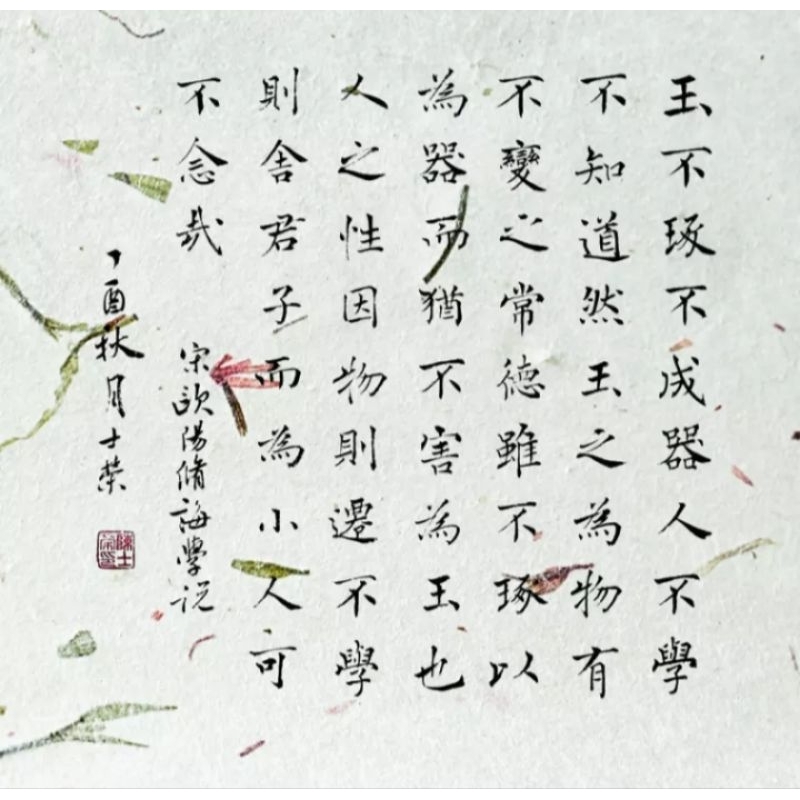 玉不琢不成器人不學
不知道然玉之為物有
不變之常德雖不琢以
為器而猶不害為玉也
人之性因物則遷不學
則舍君子而為小人可
不念哉
宋歐陽脩誨學說
丁酉秋月士榮
陳士榮印